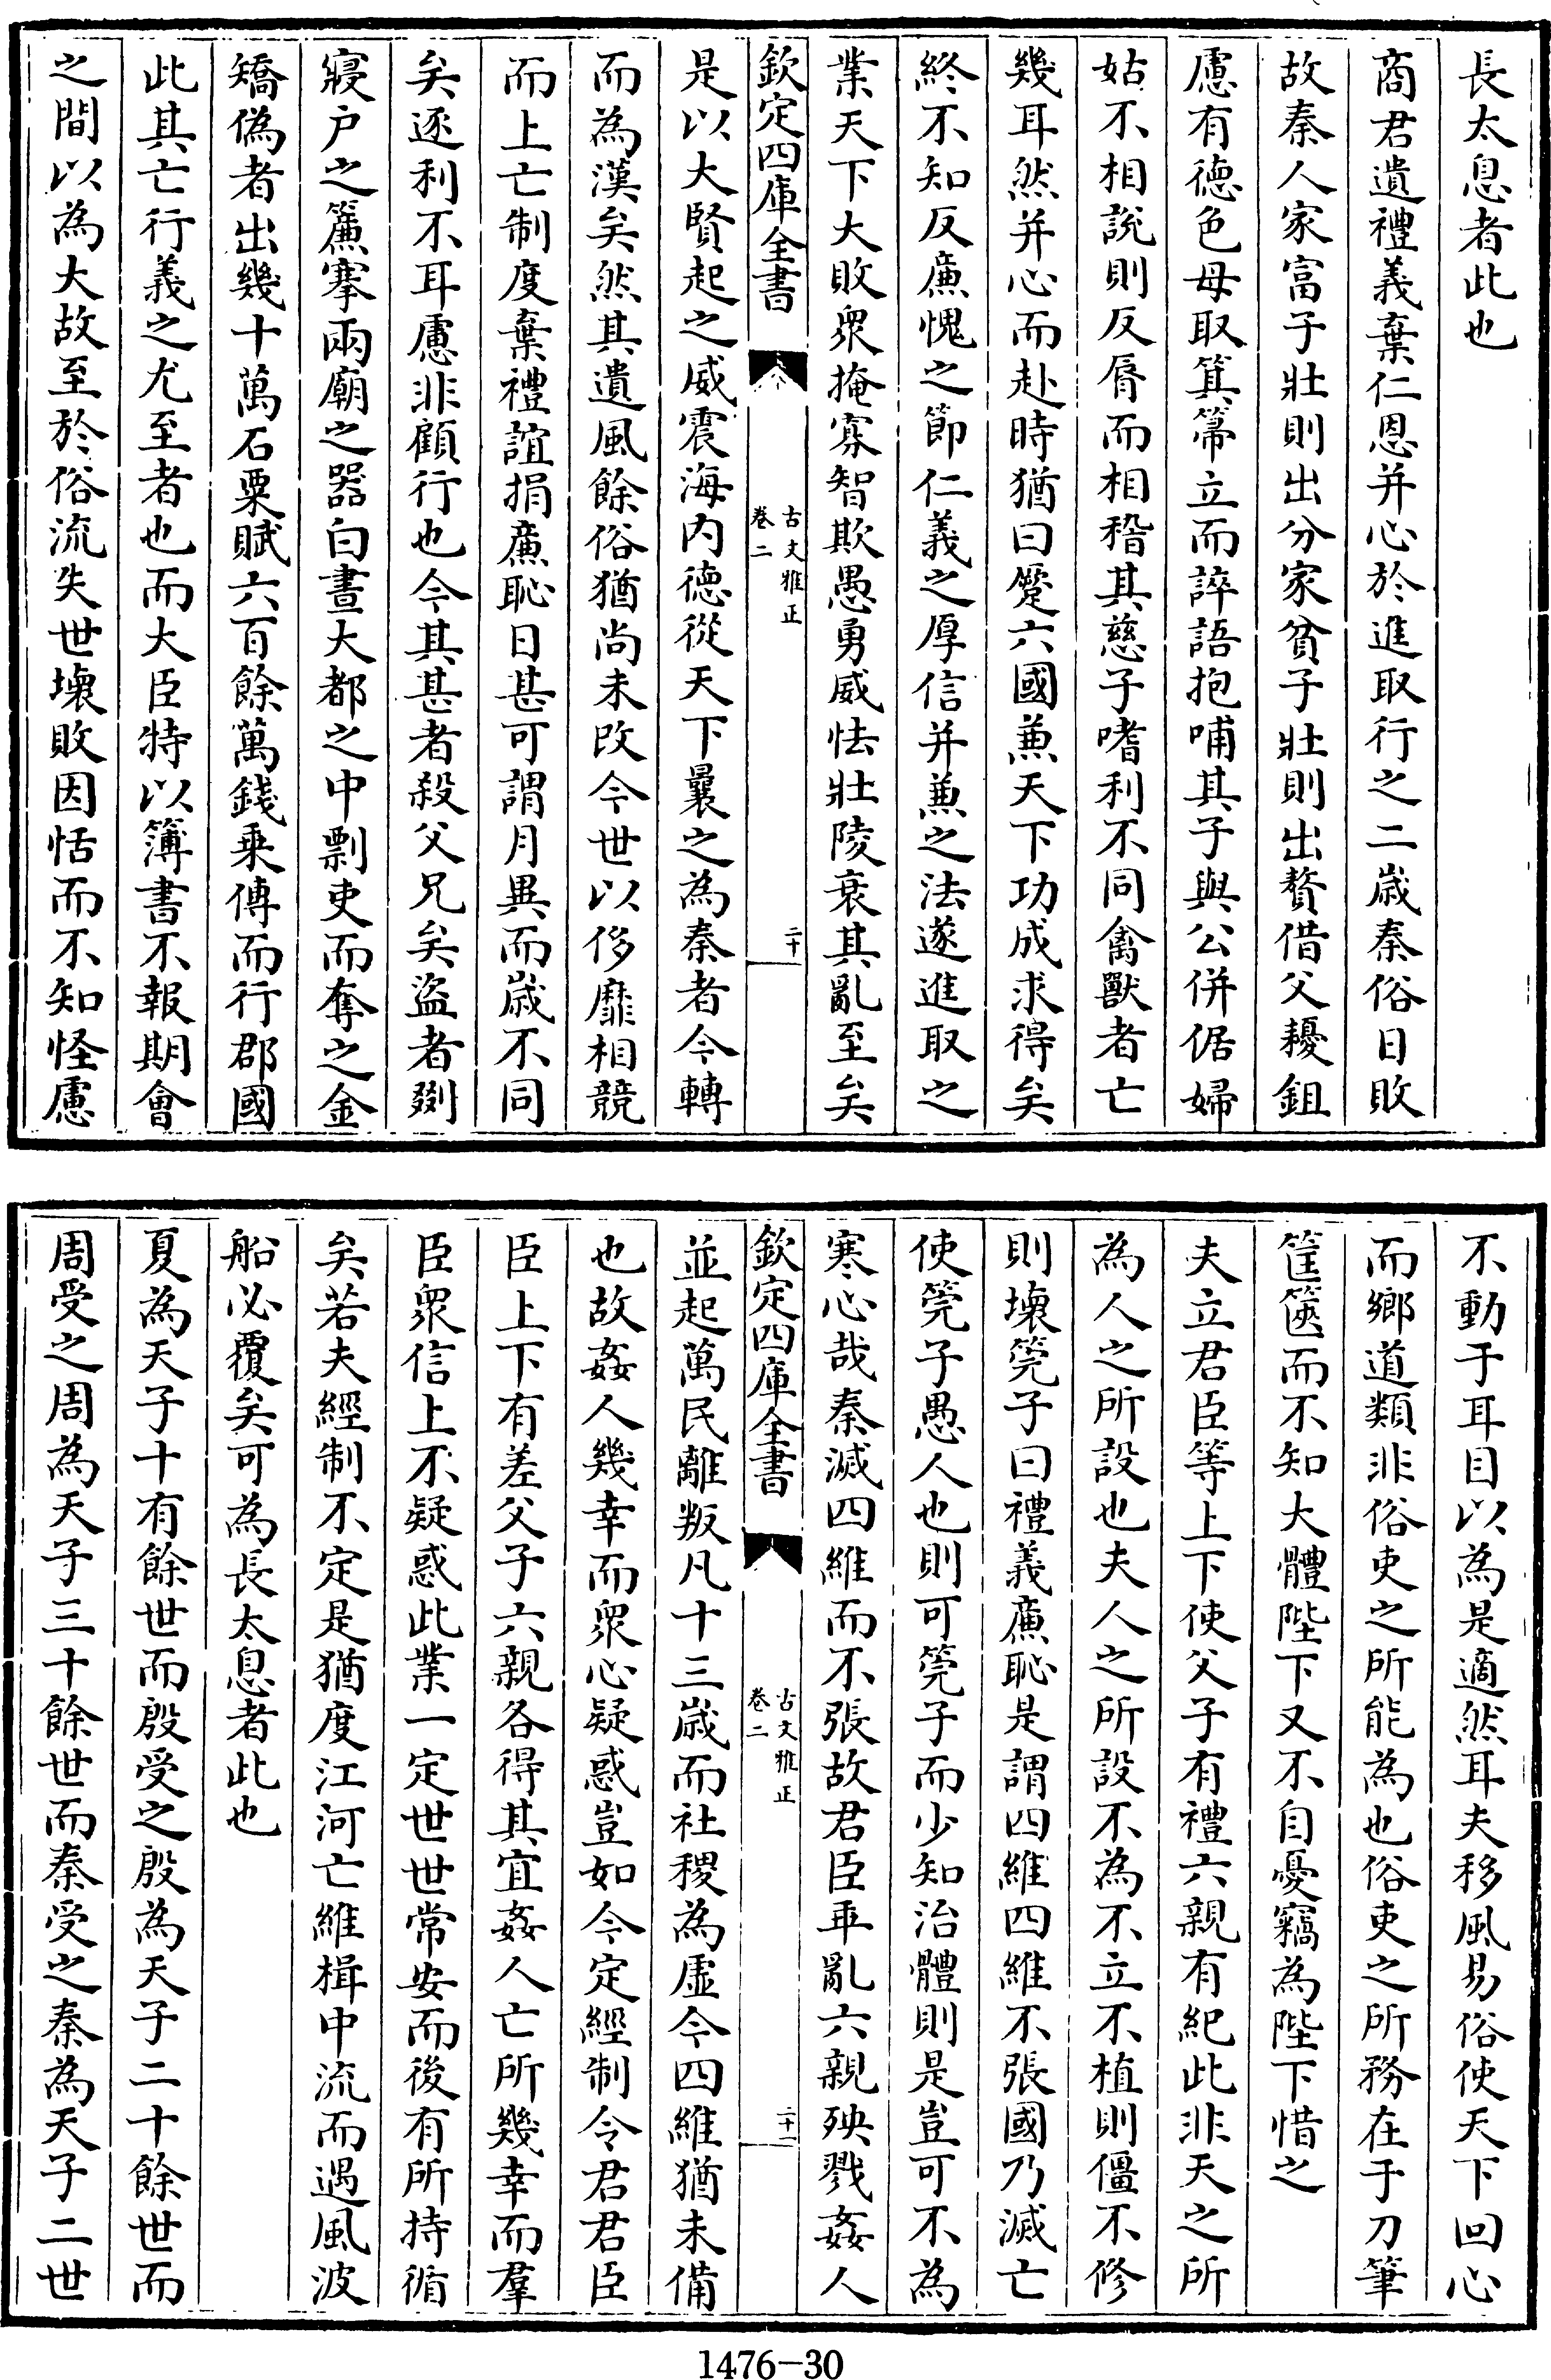 長太息者此也
商君遺禮義棄仁恩并心於進取行之二歳秦俗日敗
故秦人家富子壯則出分家貧子壯則出贅借父耰鉏
慮有徳色母取箕箒立而誶語抱哺其子與公併倨婦
姑不相說則反脣而相稽其慈子嗜利不同禽獸者亡
幾耳然并心而赴時猶曰蹷六國兼天下功成求得矣
終不知反廉愧之節仁義之厚信并兼之法遂進取之
業天下大敗衆掩寡智欺愚勇威怯壯陵衰其亂至矣
欽定四庫全書
古文雅正
卷二
二十
是以大賢起之威震海内徳從天下曩之為秦者今轉
而為漢矣然其遺風餘俗猶尚未改今世以侈靡相競
而上亡制度棄禮誼捐廉恥日甚可謂月異而歳不同
矣逐利不耳慮非顧行也今其甚者殺父兄矣盜者剟
寢户之簾搴兩廟之器白晝大都之中剽吏而奪之金
矯偽者出幾十萬石粟賦六百餘萬錢乗傳而行郡國
此其亡行義之尤至者也而大臣特以簿書不報期會
之間以為大故至於俗流失世壞敗因恬而不知怪慮
不動于耳目以為是適然耳夫移風易俗使天下回心
而鄉道類非俗吏之所能為也俗吏之所務在于刀筆
筐篋而不知大體陛下又不自憂竊為陛下惜之
夫立君臣等上下使父子有禮六親有紀此非天之所
為人之所設也夫人之所設不為不立不植則僵不修
則壞筦子曰禮義廉恥是謂四維四維不張國乃滅亡
使筦子愚人也則可筦子而少知治體則是豈可不為
寒心哉秦滅四維而不張故君臣乖亂六親殃戮姦人
欽定四庫全書
古文雅正
卷二
二十一
並起萬民離叛凡十三歳而社稷為虛今四維猶未備
也故姦人幾幸而衆心疑惑豈如今定經制令君君臣
臣上下有差父子六親各得其宜姦人亡所幾幸而羣
臣衆信上不疑惑此業一定世世常安而後有所持循
矣若夫經制不定是猶度江河亡維楫中流而遇風波
船必覆矣可為長太息者此也
夏為天子十有餘世而殷受之殷為天子二十餘世而
周受之周為天子三十餘世而秦受之秦為天子二世
1476-30